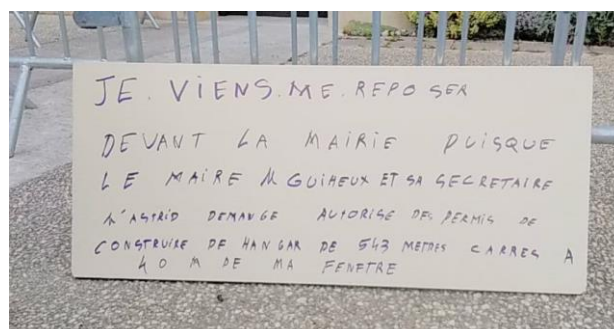 JE. VIENS. ME. REPOSER
DEVANT LA MAIRIE PUISQUE
LE MAIRE M GUIHEUX ET SA SECRETAIRE
M'ASTRID DEMANGE AUTORISE DES PERMIS DE
CONSTRUIRE DE HANGAR DE 543 METRES CARRES A
40 M DE MA FENETRE